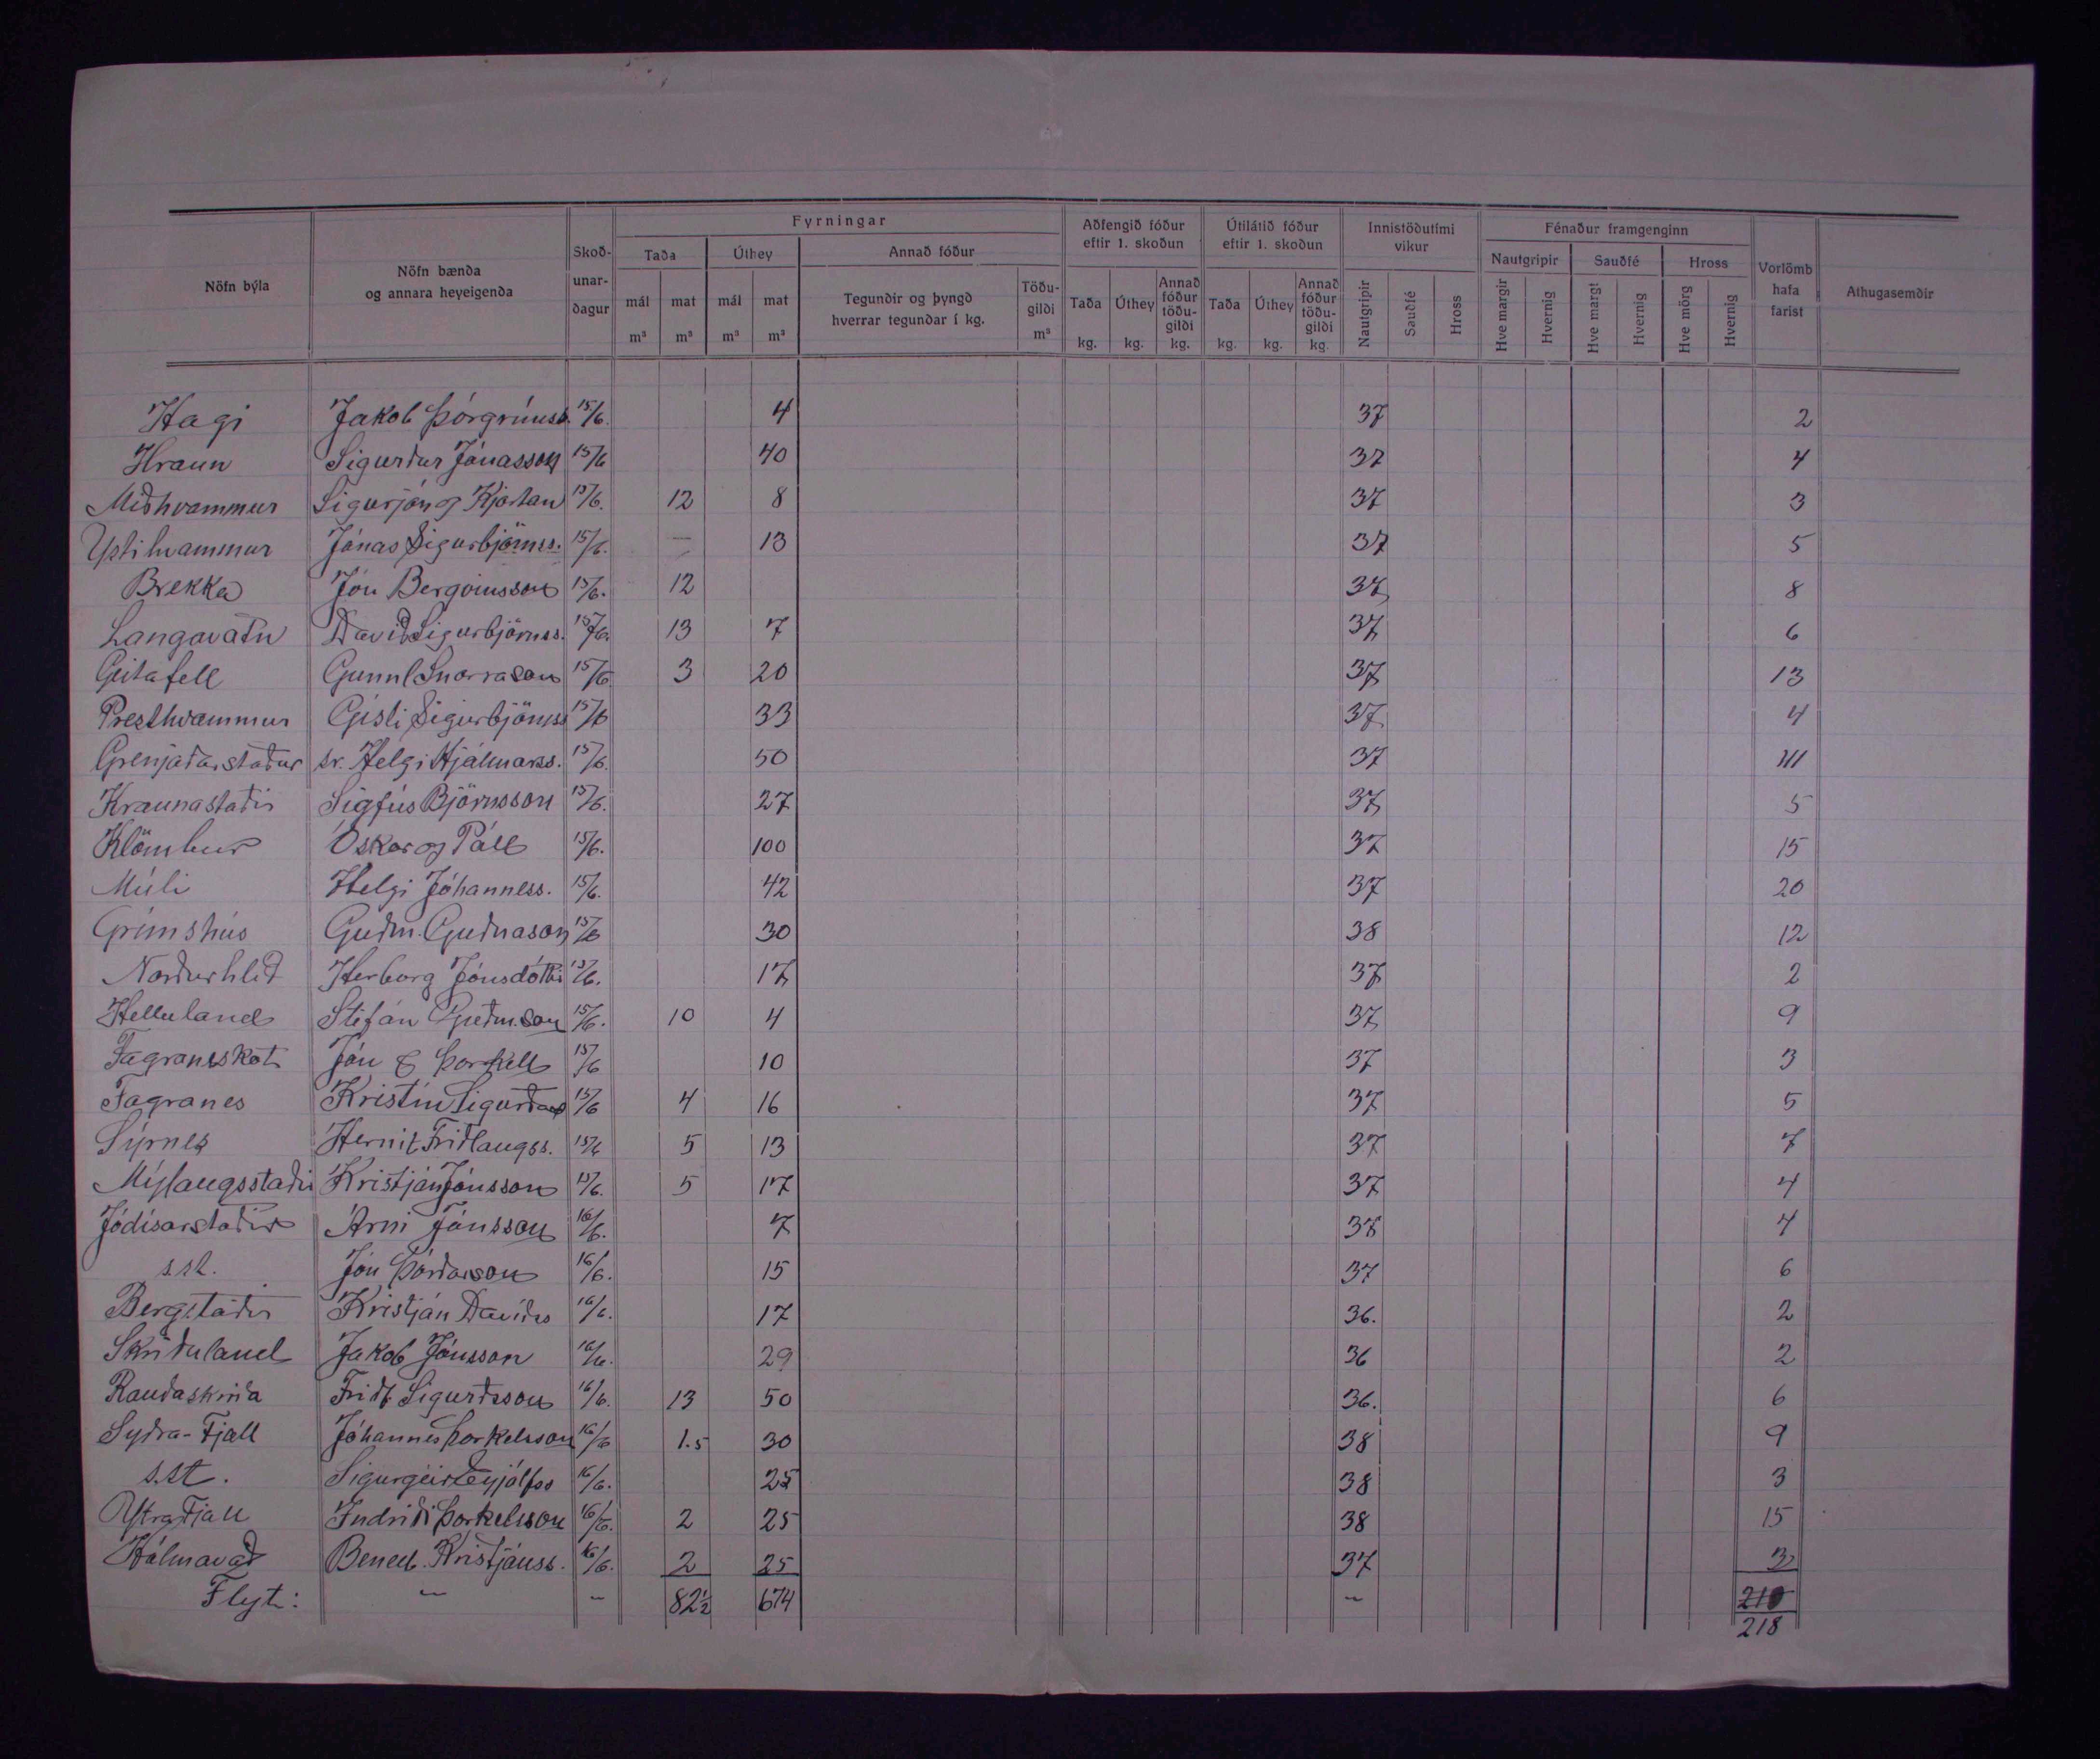 Fyrningar
Aðfengið fóður eftir 1. skoðun
Útilátið fóður eftir 1. skoðun
Innistöðutími vikur
Fénaður framgenginn
Nöfn býla
Nöfn bænda og annara heyeigenda
Skoðunar-dagur
Taða
Úthey
Annað fóður
Nautgripir
Sauðfé
Hross
Vorlömb hafa farist
Athugasemdir
mál m³ mat m³ mál m³ mat m³
Tegundir og þyngd hverrar tegundar í kg.
Töðu-gildi m³
Taða kg. Úthey kg. Annað fóður töðu-gildi kg. Taða kg. Úthey kg. Annað fóður töðu-gildi kg.
Nautgripir Sauðfé Hross
Hve margir Hvernig Hve margt Hvernig Hve mörg Hvernig
Hagi Jakob Þórgríms. 15/6. 4 37 2
Hraun Sigurður Jónasson 15/6 40 37 4
Miðhvammur Sigurjón og Kjartan 15/6. 12 8 37 3
Ystihvammur Jónas Sigurbjörnss. 15/6. – 13 37 5
Brekka Jón Bergvinsson 15/6. 12 37 8
Langavatn Davið Sigurbjörnss. 15/6. 13 7 37 6
Geitafell Gunnl Snorrason 15/6. 3 20 37 13
Presthvammur Gísli Sigurbjörnss 15/6 33 37 4
Grenjaðarstaður sr. Helgi Hjálmarss. 15/6. 50 37 41
Kraunastaðir Sigfús Björnsson 15/6. 27 37 5
Klömbur Óskar og Páll 15/6. 100 37 15
Múli Helgi Jóhanness. 15/6. 42 37 20
Grímshús Guðm. Guðnason 15/6 30 38 12
Norðurhlíð Herborg Jónsdóttir 15/6. 17 37 2
Helluland Stefán Guðm.son 15/6. 10 4 37 9
Fagraneskot Jón & Þorkell 15/6 10 37 3
Fagranes Kristín Sigurðard 15/6 4 16 37 5
Sýrnes Hernit Friðlaugss. 15/6 5 13 37 7
Mýlaugsstaðir Kristján Jónsson 15/6. 5 17 37 4
Jódísarstaðir Árni Jónsson 16/6. 7 38 4
s.st. Jón Þórðarson 16/6. 15 37 6
Bergstaðir Kristján Davíðs 16/6. 17 36. 2
Skriðuland Jakob Jónsson 16/6. 29 36 2
Rauðaskriða Friðf Sigurðsson 16/6. 13 50 36. 6
Syðra-Fjall Jóhannes Þorkelsson 16/6 1.5 30 38 9
s.st. Sigurgeir Eyjólfss 16/6. 25 38 3
Ytra Fjall Indriði Þorkelsson 16/6. 2 25 38 15
Hólmavað Bened. Kristjánss. 16/6. 2 25 37 3
Flyt: – – 82½ 674 – 210
218